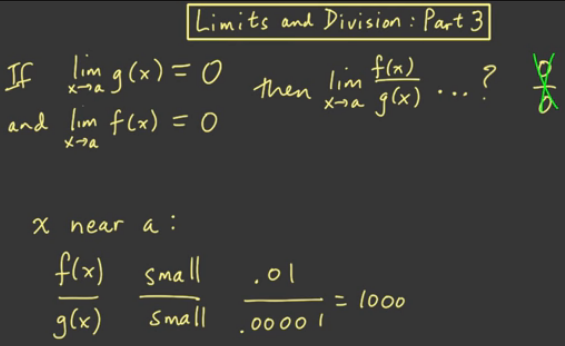 Limits and Division: Part 3
If lim x→a g(x) = 0 then lim x→a f(x)/g(x) ...? 0/0
and lim x→a f(x) = 0
x near a:
f(x)/g(x) small/small .01/.00001 = 1000